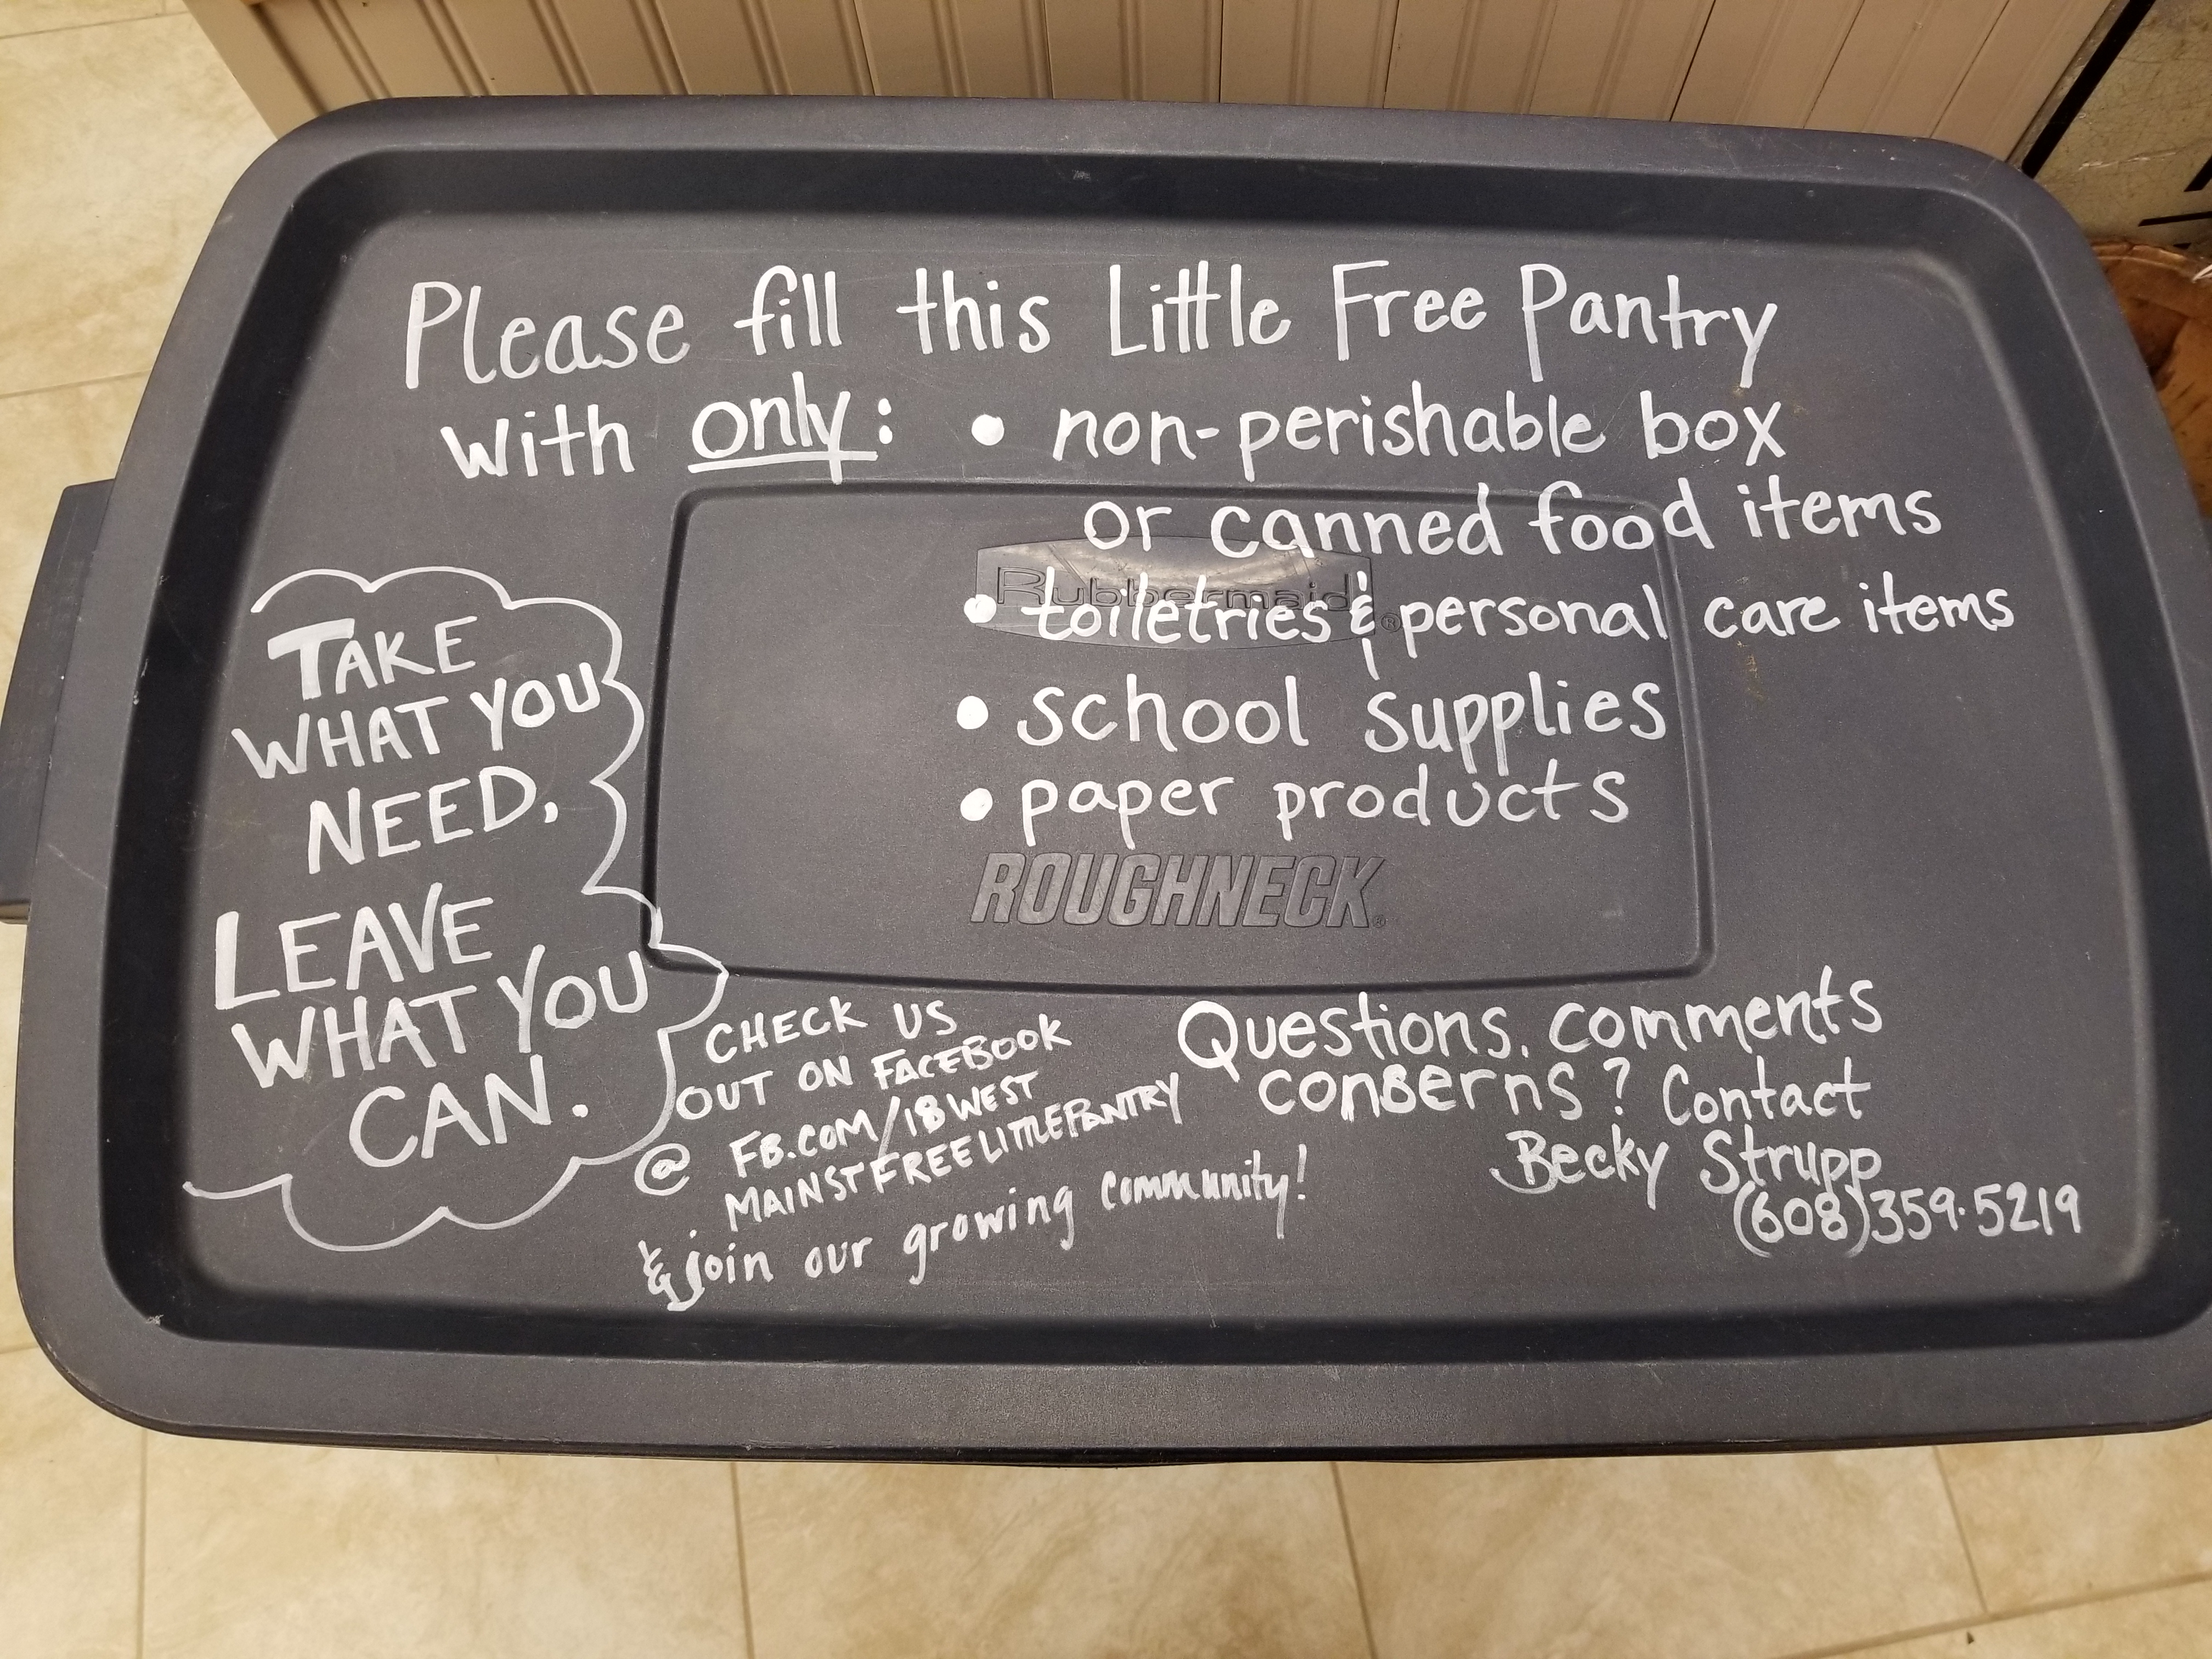 Please fill this Little Free Pantry
with only: • non-perishable box
or canned food items
Rubbermaid®
• toiletries & personal care items
• school supplies
• paper products
ROUGHNECK®
TAKE
WHAT YOU
NEED,
LEAVE
WHAT YOU
CAN.
CHECK US
OUT ON FACEBOOK
@ FB.COM/18WEST
MAINSTFREELITTLEPANTRY
& join our growing community!
Questions, comments
concerns? Contact
Becky Strupp
(608)359-5219